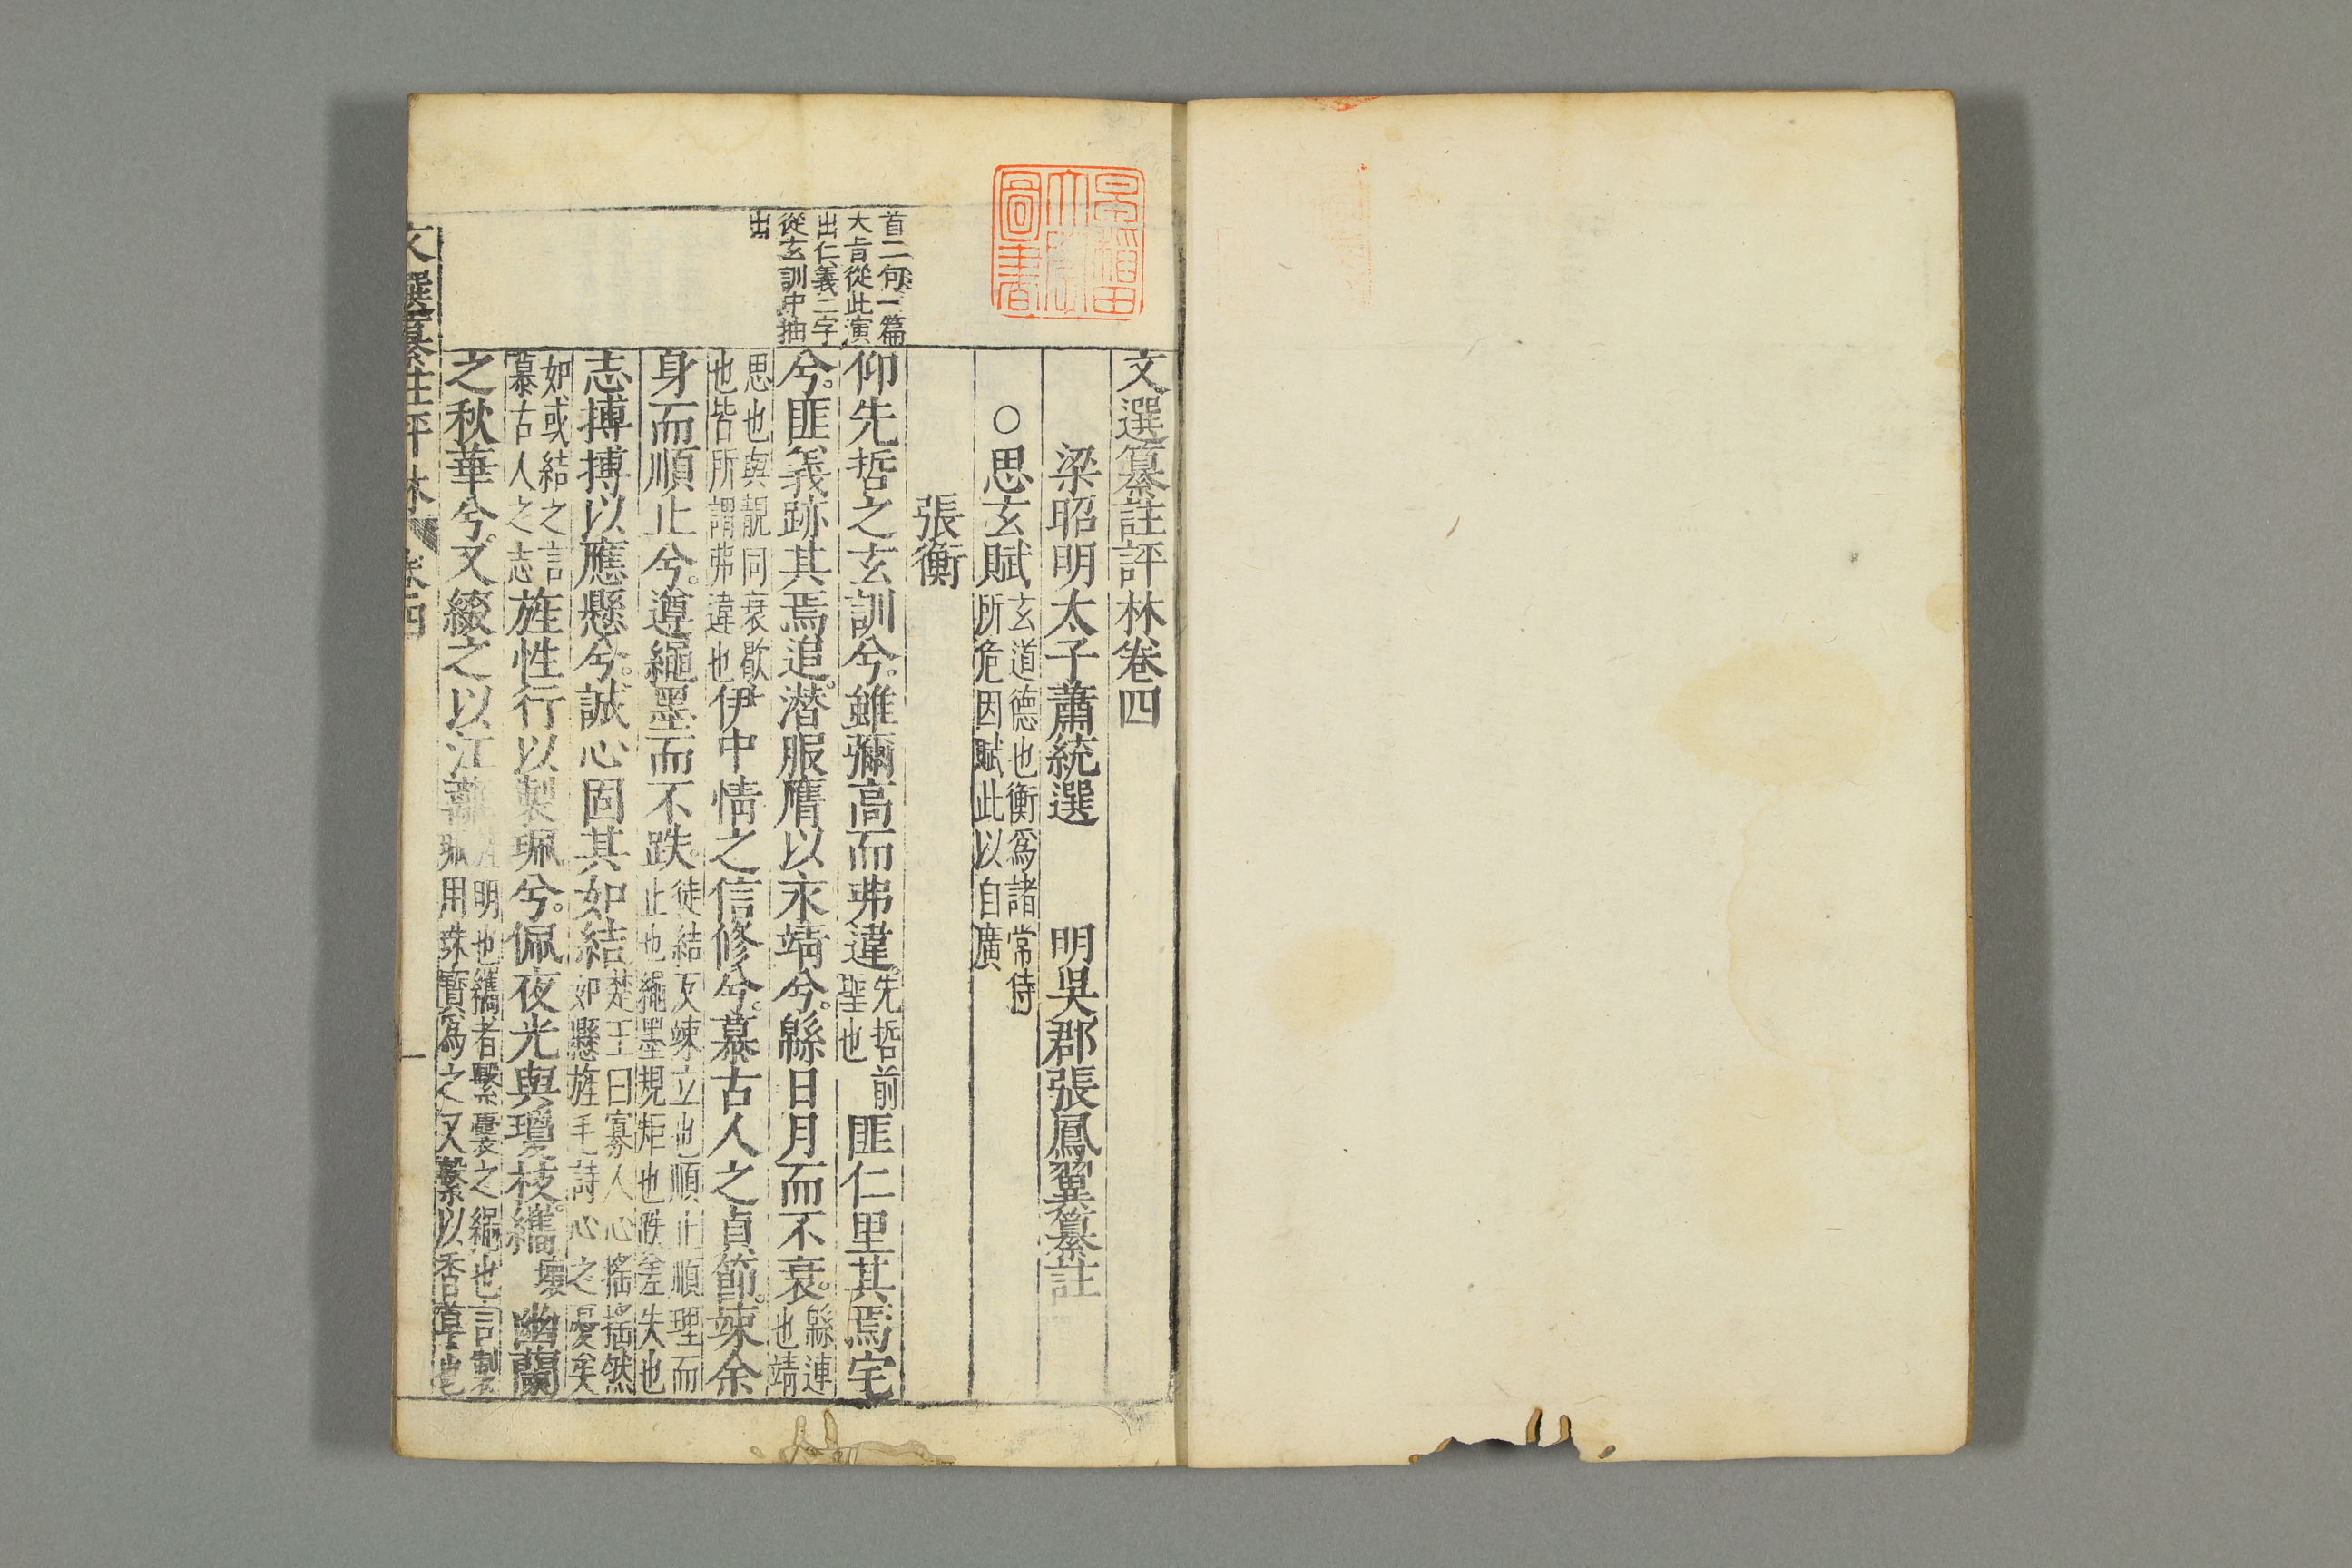 早稲田大學圖書
文選纂註評林卷四
梁昭明太子蕭統選 明吳郡張鳳翼纂註
○思玄賦 玄道德也衡爲諸常侍所危因賦此以自廣
張衡
首二句一篇
大旨從此演
出仁義二字
從玄訓中抽
出
仰先哲之玄訓兮。雖彌高而弗違。先哲前聖也匪仁里其焉宅
兮。匪義跡其焉追。潜服膺以永靖兮。緜日月而不衰。緜連也靖
思也與靚同衰歇也皆所謂弗違也伊中情之信修兮。慕古人之貞節。竦余
身而順止兮。遵繩墨而不跌。徒結反竦立也順止順理而止也繩墨規矩也跌差失也
志摶摶以應懸兮。誠心固其如結楚王曰寡人心搖搖然如懸旌毛詩心之憂矣
如或結之言慕古人之志旌性行以製珮兮。佩夜光與瓊枝。纗壞幽蘭
之秋華兮。又綴之以江蘺旌明也纗者繫囊之繩也言製珮用珠寶爲之又蘩以香草也
文選纂註評林 卷四 一